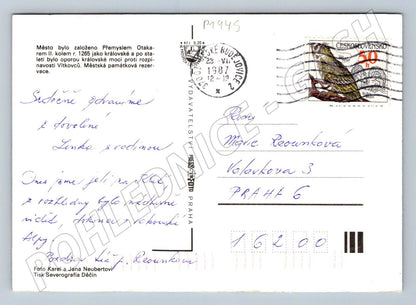 P1945
Město bylo založeno Přemyslem Otaka-
rem II. kolem r. 1265 jako královské a po sta-
letí bylo oporou královské moci proti rozpí-
navosti Vítkovců. Městská památková rezer-
vace.
Srdečně zdravíme
z dovolené
Lenka s rodinou
Dnes jsme jeli na
z rozhledny bylo nádherně
vidět dokonce
Alpy.
Foto Karel a Jana Neubertovi
Tisk Severografia Děčín
VYDAVATELSTVÍ
PRAHA
ČESKÉ BUDĚJOVICE 2
23. VII.
1987
12-19
ČESKOSLOVENSKO
50 h
Rodina
Marie Reounková
Volavkova 3
PRAHA 6
16200
POHLEDNICE - CECH